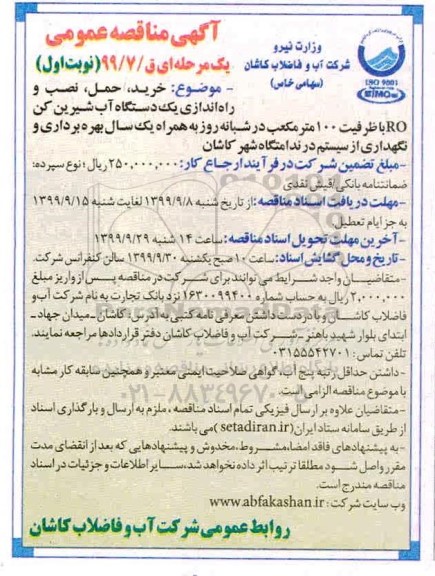 آگهی مناقصه عمومی
یک مرحله‌ای ق/۹۹/۷ (نوبت اول)
وزارت نیرو
شرکت آب و فاضلاب کاشان
(سهامی خاص)
ISO 9001
- موضوع: خرید، حمل، نصب و
راه‌اندازی یک دستگاه آب شیرین کن
RO با ظرفیت ۱۰۰ متر مکعب در شبانه روز به همراه یک سال بهره برداری و
نگهداری از سیستم در ندامتگاه شهر کاشان
- مبلغ تضمین شرکت در فرآیند ارجاع کار: ۲۵۰,۰۰۰,۰۰۰ ریال؛ نوع سپرده:
ضمانتنامه بانکی/فیش نقدی
- مهلت دریافت اسناد مناقصه: از تاریخ شنبه ۱۳۹۹/۹/۸ لغایت شنبه ۱۳۹۹/۹/۱۵
به جز ایام تعطیل
- آخرین مهلت تحویل اسناد مناقصه: ساعت ۱۴ شنبه ۱۳۹۹/۹/۲۹
- تاریخ و محل گشایش اسناد: ساعت ۱۰ صبح یکشنبه ۱۳۹۹/۹/۳۰ سالن کنفرانس شرکت.
- متقاضیان واجد شرایط می توانند برای شرکت در مناقصه پس از واریز مبلغ
۲,۰۰۰,۰۰۰ ریال به حساب شماره ۱۶۳۰۰۹۹۴۰۰ نزد بانک تجارت به نام شرکت آب و
فاضلاب کاشان و با در دست داشتن معرفی نامه کتبی به آدرس: کاشان - میدان جهاد -
ابتدای بلوار شهید باهنر - شرکت آب و فاضلاب کاشان دفتر قراردادها مراجعه نمایند.
تلفن تماس: ۰۳۱۵۵۵۴۲۷۰۱
- داشتن حداقل رتبه پنج آب، گواهی صلاحیت ایمنی معتبر و همچنین سابقه کار مشابه
با موضوع مناقصه الزامی است.
۰۲۱-۸۸۳۴۹۶۷۰-۵
- متقاضیان علاوه بر ارسال فیزیکی تمام اسناد مناقصه، ملزم به ارسال و بارگذاری اسناد
از طریق سامانه ستاد ایران (setadiran.ir) می باشند.
- به پیشنهادهای فاقد امضا، مشروط، مخدوش و پیشنهادهایی که بعد از انقضای مدت
مقرر واصل شود مطلقا ترتیب اثر داده نخواهد شد، سایر اطلاعات و جزئیات در اسناد
مناقصه مندرج است.
وب سایت شرکت: www.abfakashan.ir
روابط عمومی شرکت آب و فاضلاب کاشان